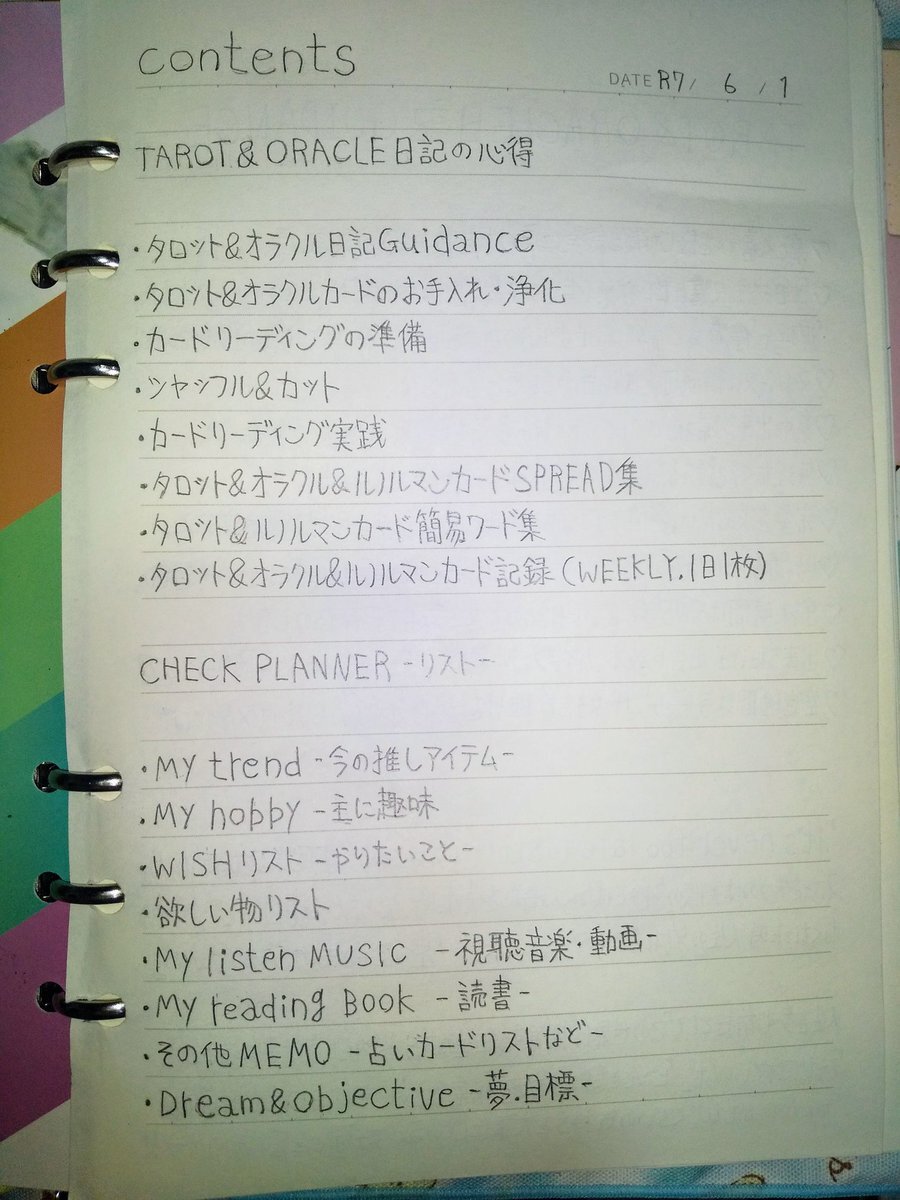 contents
DATE R7/ 6 / 1
TAROT&ORACLE日記の心得
・タロット&オラクル日記Guidance
・タロット&オラクルカードのお手入れ・浄化
・カードリーディングの準備
・シャッフル&カット
・カードリーディング実践
・タロット&オラクル&ルノルマンカードSPREAD集
・タロット&ルノルマンカード簡易ワード集
・タロット&オラクル&ルノルマンカード記録(WEEKLY.1日1枚)
CHECK PLANNER -リスト-
・My trend -今の推しアイテム-
・My hobby -主に趣味
・WISHリスト -やりたいこと-
・欲しい物リスト
・My listen MUSIC -視聴音楽・動画-
・My reading Book -読書-
・その他MEMO -占いカードリストなど-
・Dream&objective -夢.目標-
&